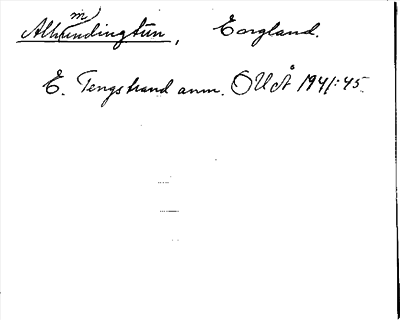 Almundingtün, Eorgland.
E. Tengstrand anm. OUÅ 1941:45.